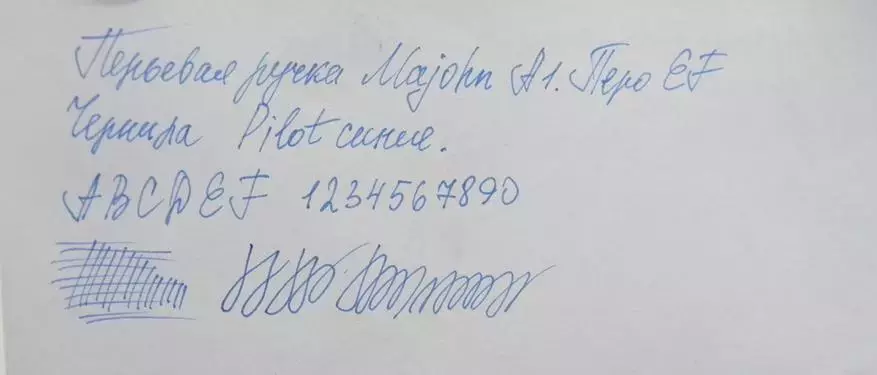 Перьевая ручка Majohn A1. Перо EF
Чернила Pilot синие.
ABCDEF 1234567890